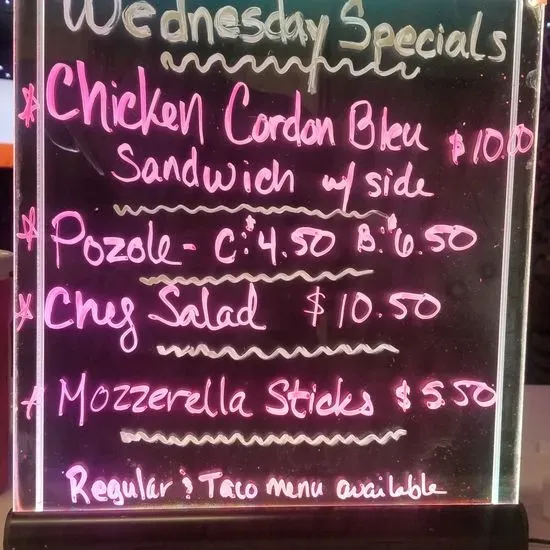 Wednesday Specials
Chicken Cordon Bleu $10.00
Sandwich w/ side
Pozole - C:$4.50 B:$6.50
Chef Salad $10.50
Mozzerella Sticks $5.50
Regular & Taco menu available